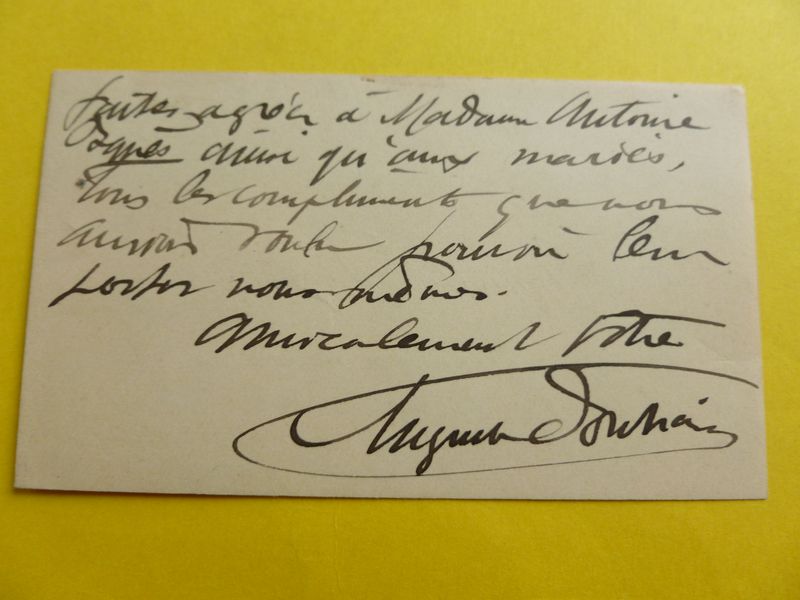 faites agréer à Madame Antoine
ainsi qu'aux mariés,
tous les compliments que nous
aurions voulu pouvoir leur
porter nous-mêmes.
Amicalement Votre
Auguste Dorchain